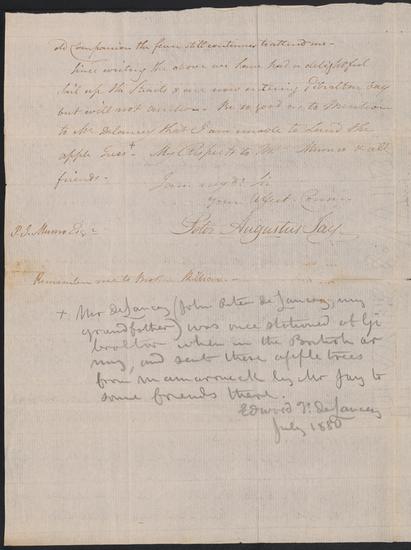 old Companion the fever still continues to attend me -
Since writing the above we have had a delightful
sail up the Straits & are now entering Gibraltar bay
but will not anchor. Be so good as to mention
to Mr. Delancey that I am unable to land the
apple Trees + My Respects to Mrs Munro & all
friends.
I am my dr. Sir
Your Affect. Cousin
Peter Augustus Jay.
P. J. Munro Esqr.
Remember me to
+ Mr deLancey (John Peter de Lancey, my
grandfather) was once stationed at Gi
braltar when in the British ar
my, and sent these apple trees
from Mamaroneck by Mr Jay to
some friends there.
Edward F. deLancey
July 1880